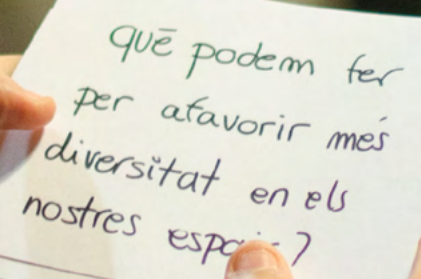 què podem fer
per afavorir més
diversitat en els
nostres